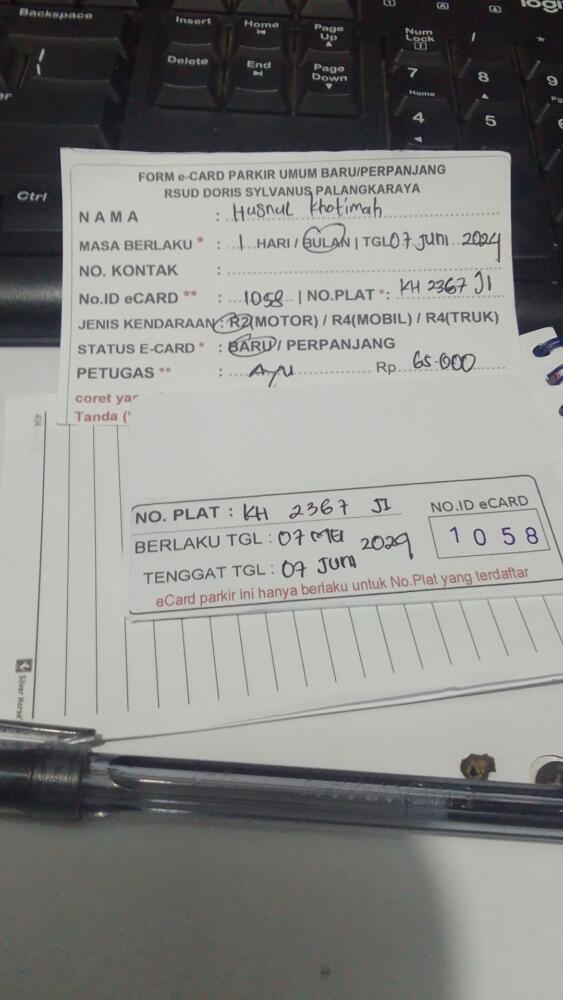 Backspace
Insert
Home
Page
Up
Num
Lock
/
*
Delete
End
Page
Down
7
Home
8
9
4
5
Ctrl
FORM e-CARD PARKIR UMUM BARU/PERPANJANG
RSUD DORIS SYLVANUS PALANGKARAYA
N A M A : Husnul Khotimah
MASA BERLAKU * : 1 HARI / BULAN | TGL 07 Juni 2024
NO. KONTAK :
No.ID eCARD ** : 1058 | NO.PLAT *: KH 2367 JI
JENIS KENDARAAN : R2(MOTOR) / R4(MOBIL) / R4(TRUK)
STATUS E-CARD * : BARU / PERPANJANG
PETUGAS ** : Ayu Rp. 65.000
coret
Tanda (*
NO. PLAT : KH 2367 JI
NO.ID eCARD
1058
BERLAKU TGL : 07 Mei 2029
TENGGAT TGL : 07 Juni
eCard parkir ini hanya berlaku untuk No.Plat yang terdaftar
Silver Horse